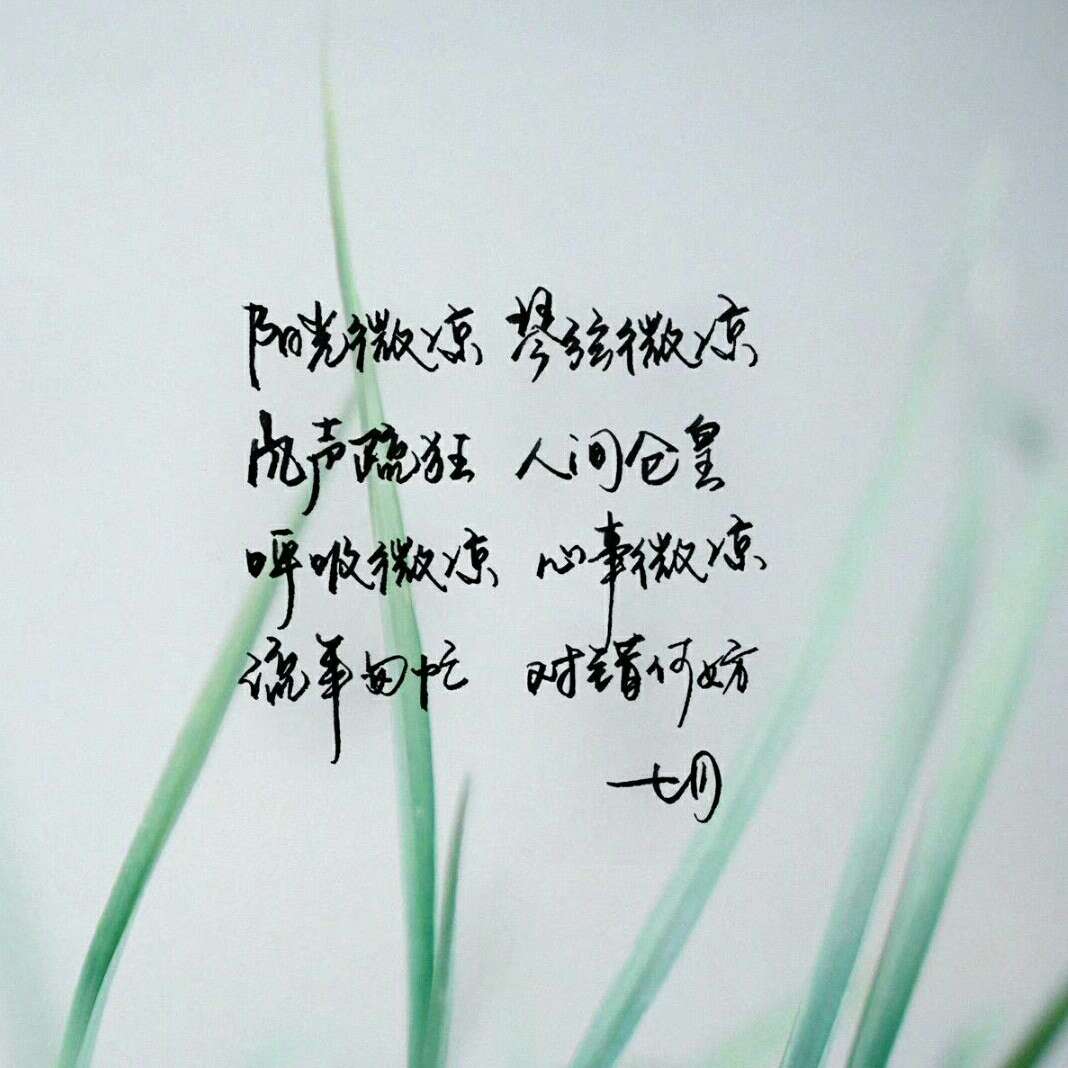 阳光微凉 琴弦微凉
风声疏狂 人间仓皇
呼吸微凉 心事微凉
流年匆忙 对错何妨
七月